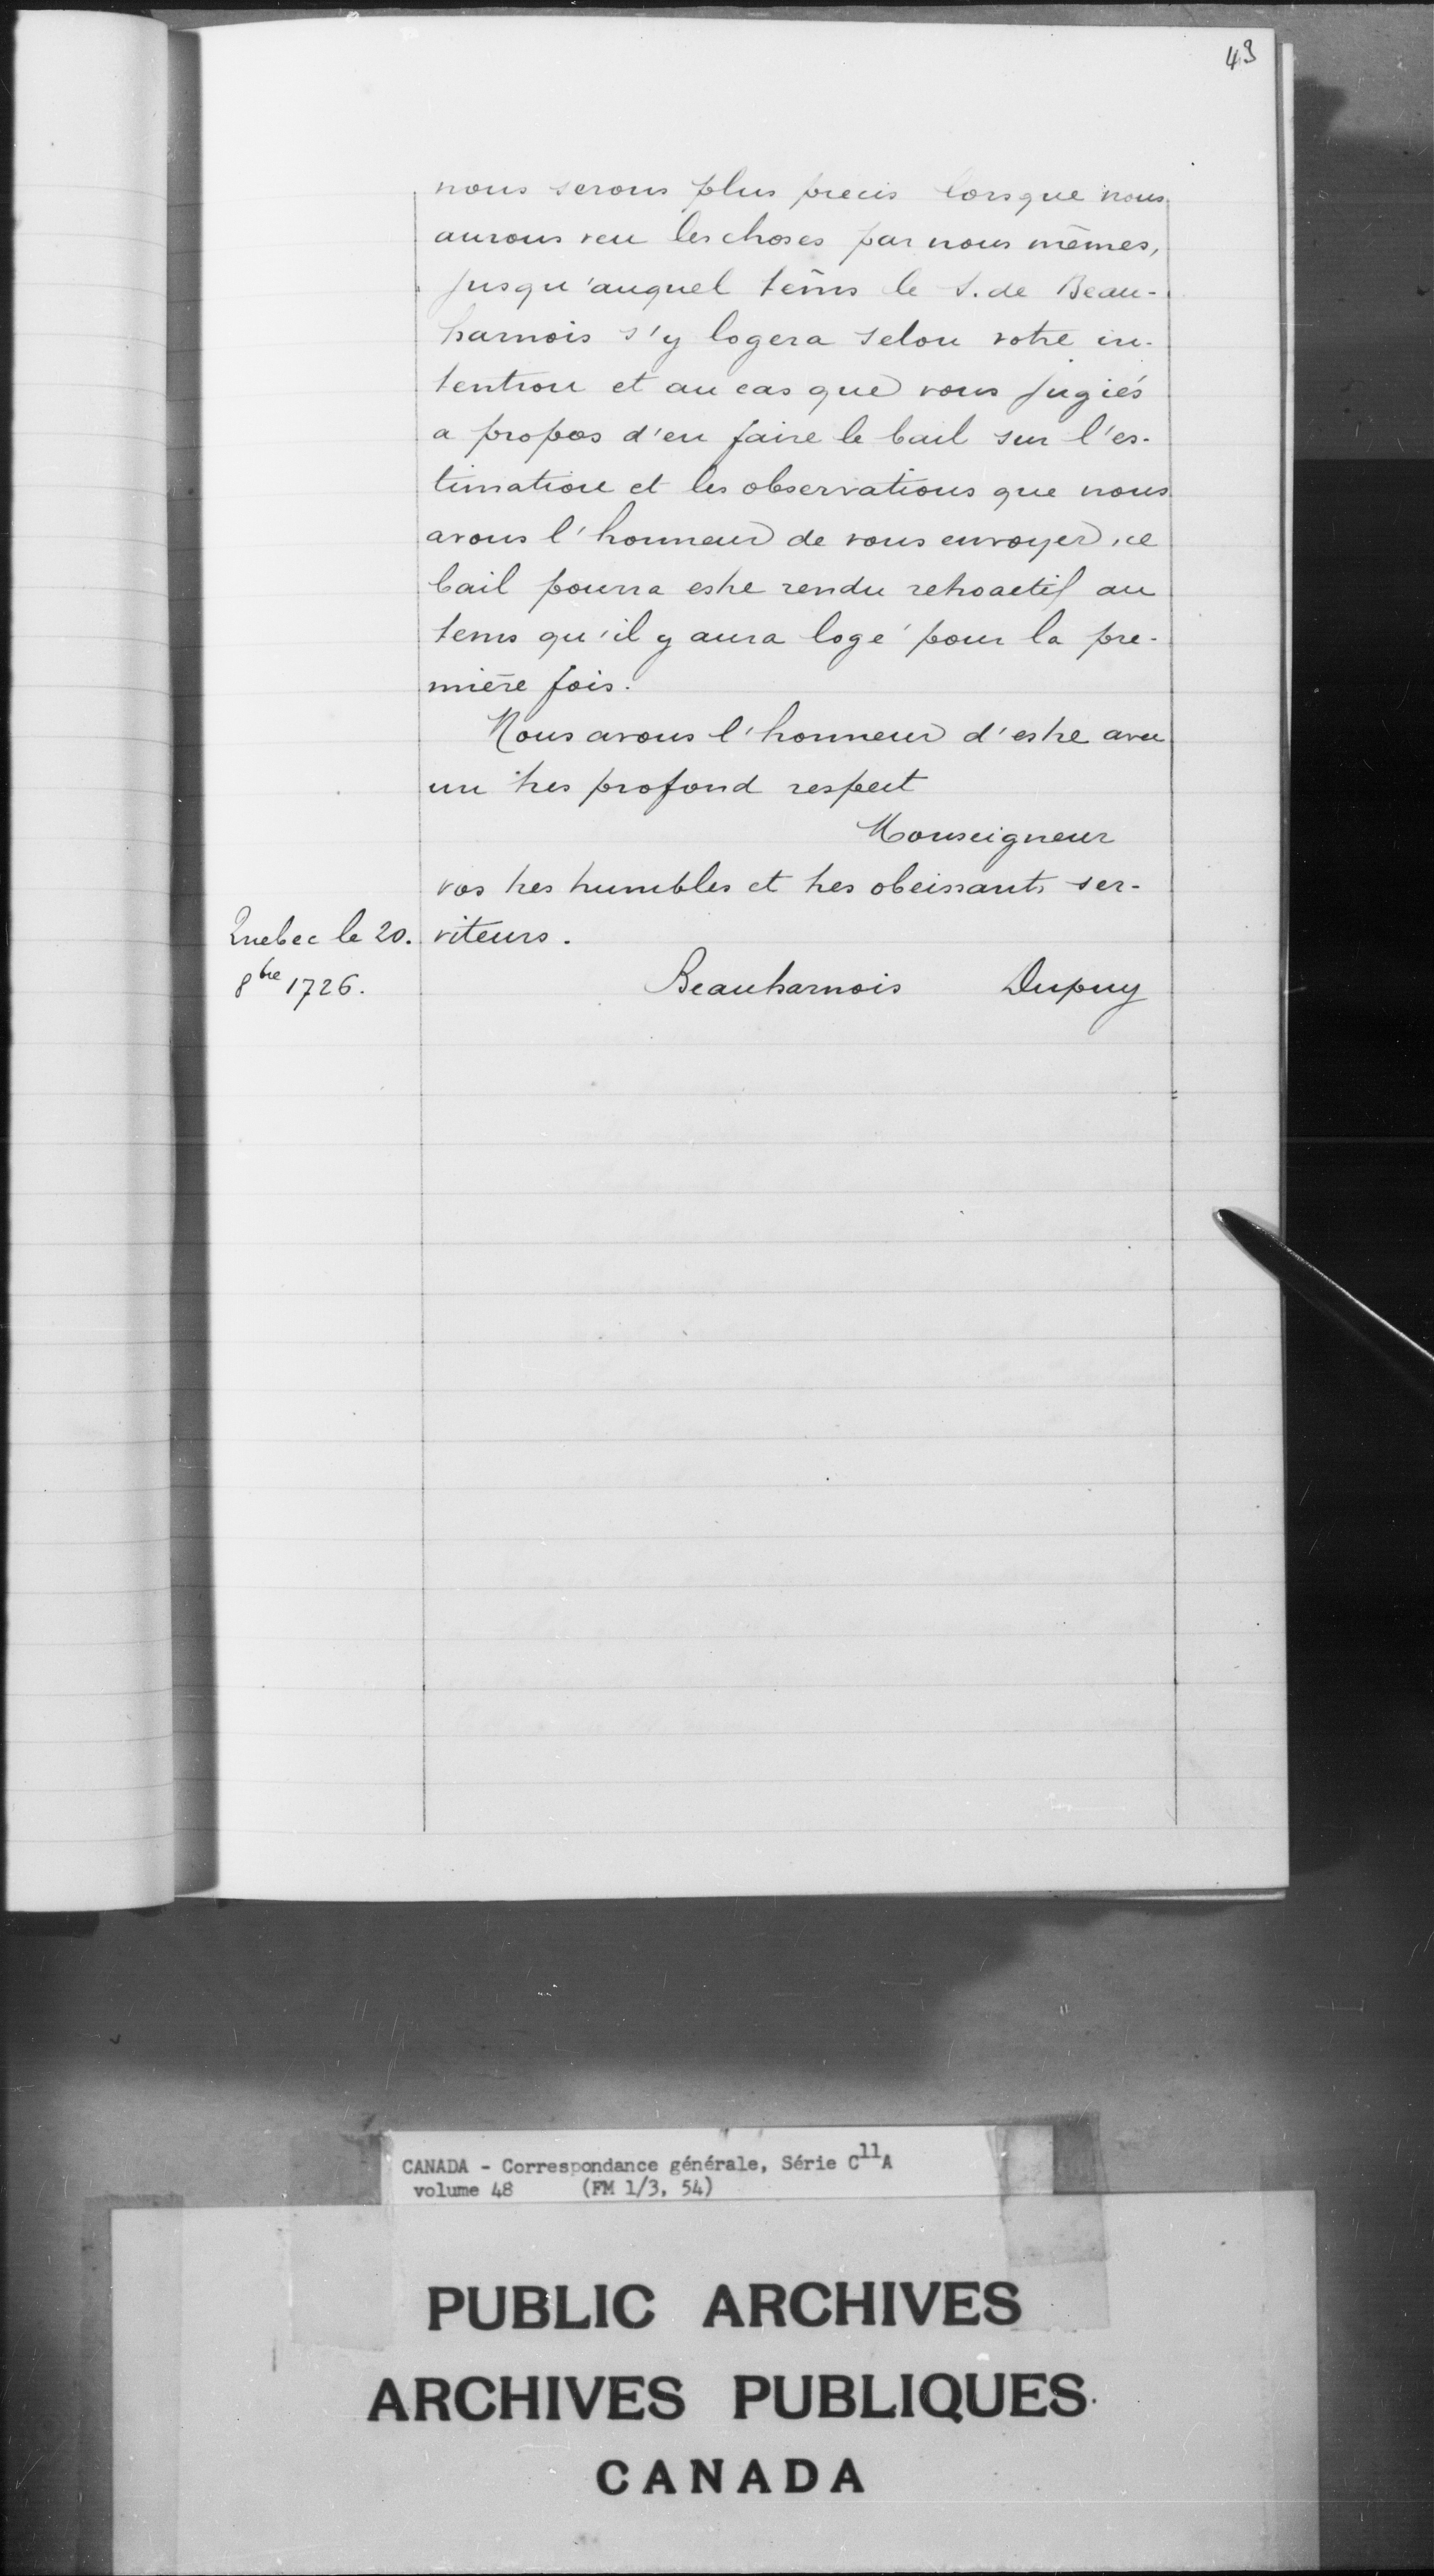 43
nous serons plus precis lorsque nous
aurons veu les choses par nous mêmes,
jusqu'auquel tems le S. de Beau-
harnois s'y logera selon votre in-
tention et au cas que vous jugiés
a propos d'en faire le bail sur l'es-
timation et les observations que nous
avons l'honneur de vous envoyer, ce
bail pourra estre rendu retroactif au
tems qu'il y aura logé pour la pre-
mière fois.
Nous avons l'honneur d'estre avec
un tres profond respect
Monseigneur
vos tres humbles et tres obeissants ser-
Quebec le 20. viteurs.
8bre 1726. Beauharnois Dupuy
CANADA - Correspondance générale, Série C11A
volume 48 (FM 1/3, 54)
PUBLIC ARCHIVES
ARCHIVES PUBLIQUES
CANADA